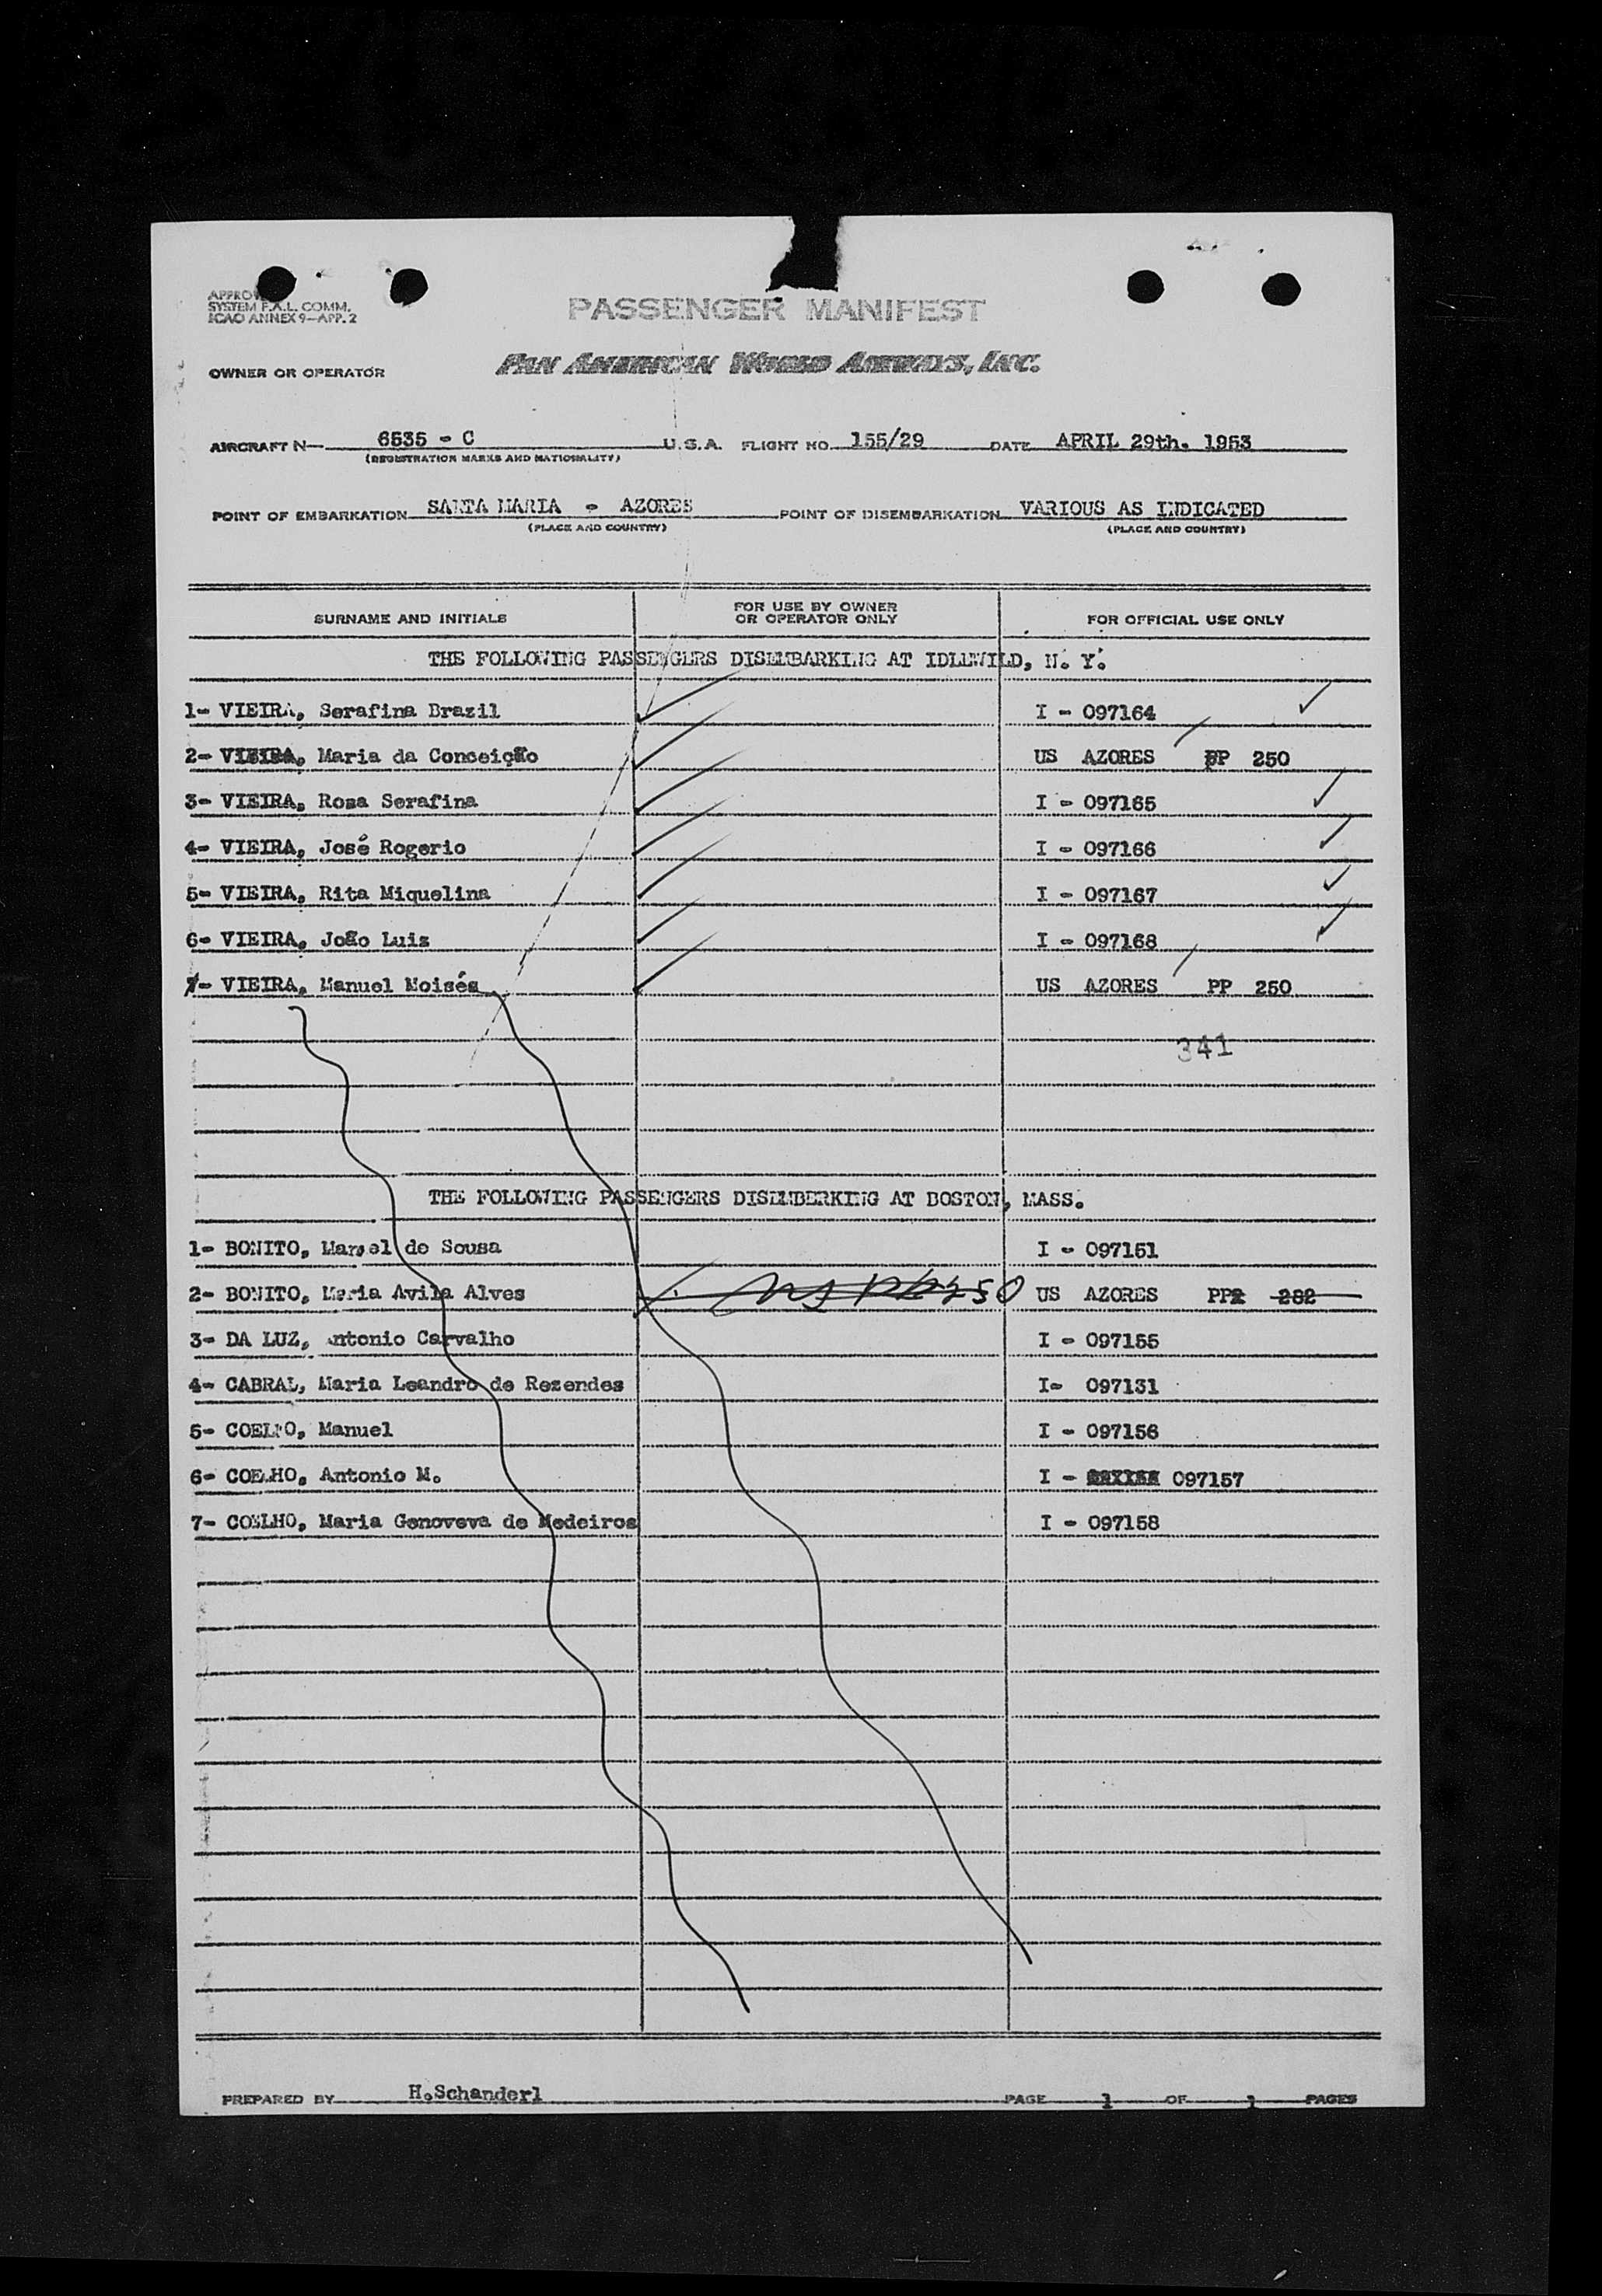 SYSTEM F.A.L. COMM.
ICAO ANNEX 9—APP. 2
PASSENGER MANIFEST
OWNER OR OPERATOR PAN AMERICAN WORLD AIRWAYS, INC.
AIRCRAFT N— 6535 - C U.S.A. FLIGHT NO. 155/29 DATE APRIL 29th. 1953
(REGISTRATION MARKS AND NATIONALITY)
POINT OF EMBARKATION SANTA MARIA - AZORES POINT OF DISEMBARKATION VARIOUS AS INDICATED
(PLACE AND COUNTRY) (PLACE AND COUNTRY)
SURNAME AND INITIALS FOR USE BY OWNER OR OPERATOR ONLY FOR OFFICIAL USE ONLY
THE FOLLOWING PASSENGERS DISEMBARKING AT IDLEWILD, N. Y.
1- VIEIRA, Serafina Brazil I - 097164
2- VIEIRA, Maria da Conceição US AZORES PP 250
3- VIEIRA, Rosa Serafina I - 097165
4- VIEIRA, José Rogerio I - 097166
5- VIEIRA, Rita Miquelina I - 097167
6- VIEIRA, João Luiz I - 097168
7- VIEIRA, Manuel Moisés US AZORES PP 250
341
THE FOLLOWING PASSENGERS DISEMBERKING AT BOSTON, MASS.
1- BONITO, Manuel de Sousa I - 097151
2- BONITO, Maria Avila Alves US PP 250 US AZORES PP 282
3- DA LUZ, Antonio Carvalho I - 097155
4- CABRAL, Maria Leandro de Rezendes I- 097131
5- COELHO, Manuel I - 097156
6- COELHO, Antonio M. I - 097157
7- COELHO, Maria Genoveva de Medeiros I - 097158
PREPARED BY H.Schanderl PAGE 1 OF 1 PAGES